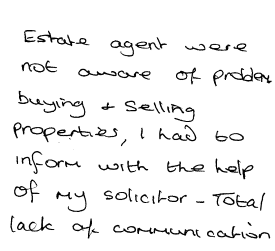 Estate agent were
not aware of problem
buying + selling
properties, I had to
inform with the help
of my solicitor - Total
lack of communication